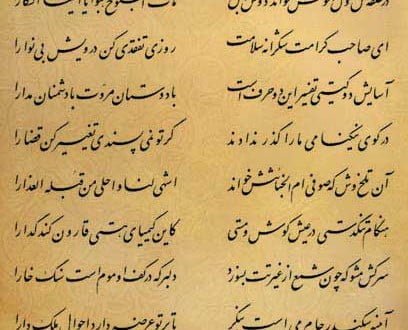 در حلقه گل و مل خوش خواند دوش بلبل هات الصبوح هبوا یا ایها السکارا
ای صاحب کرامت شکرانه سلامت روزی تفقدی کن درویش بی نوا را
آسایش دو گیتی تفسیر این دو حرف است با دوستان مروت با دشمنان مدارا
در کوی نیکنامی ما را گذر ندادند گر تو نمی پسندی تغییر کن قضا را
آن تلخ وش که صوفی ام الخبائثش خواند اشهی لنا و احلی من قبله العذارا
هنگام تنگدستی در عیش کوش و مستی کاین کیمیای هستی قارون کند گدا را
سرکش مشو که چون شمع از غیرتت بسوزد دلبر که در کف او موم است سنگ خارا
سکندر جام می است بنگر تا بر تو عرضه دارد احوال ملک دارا